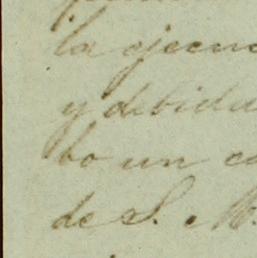 la ejecu
y debida
bo un co
de S. M.